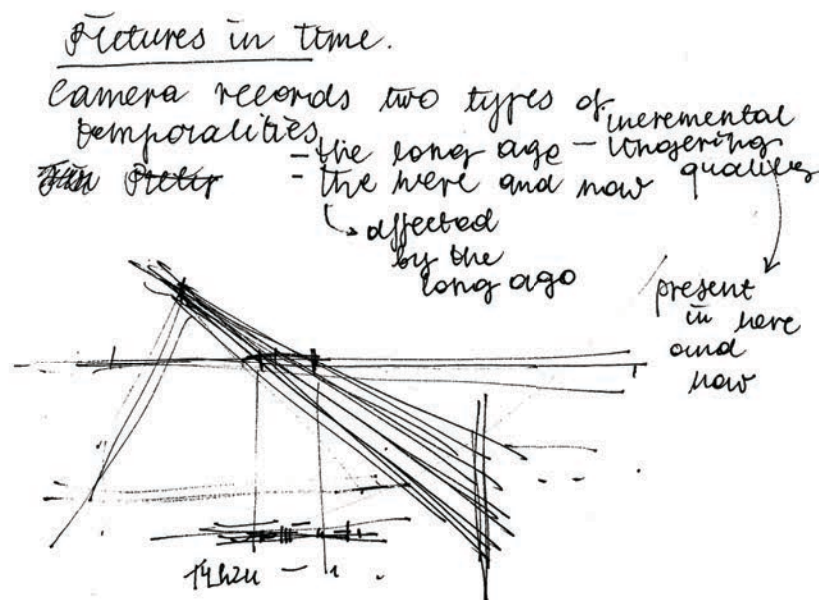 Pictures in time.
Camera records two types of
temporalities
- the long ago - incremental
lingering
quality
- the here and now
affected
by the
long ago
present
in here
and
now